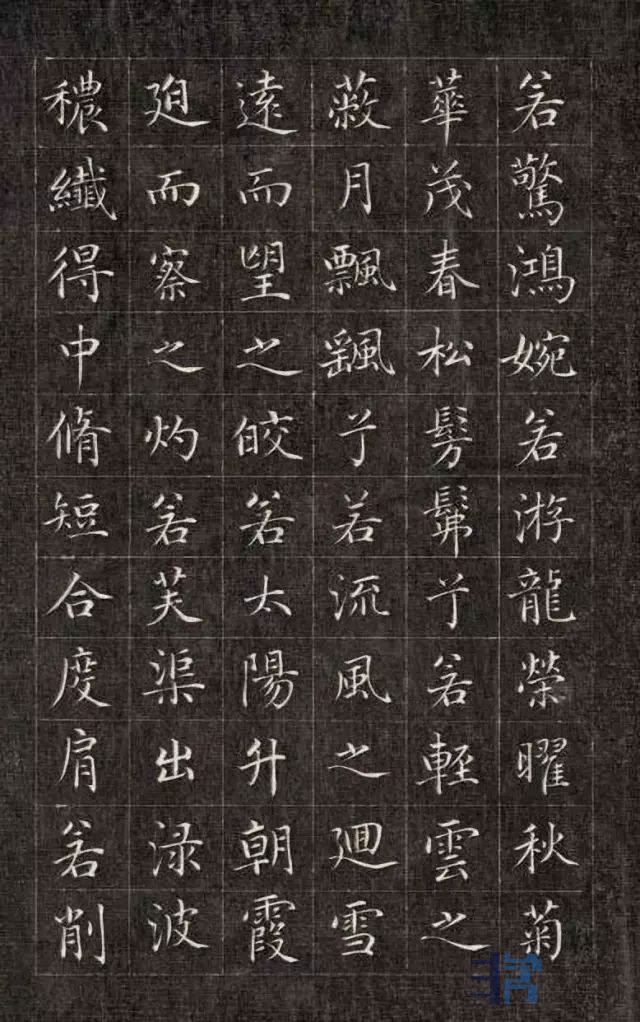 若驚鴻婉若游龍榮曜秋菊
華茂春松髣髴兮若輕雲之
蔽月飄颻兮若流風之廻雪
遠而望之皎若太陽升朝霞
迫而察之灼若芙渠出渌波
穠纖得中脩短合度肩若削